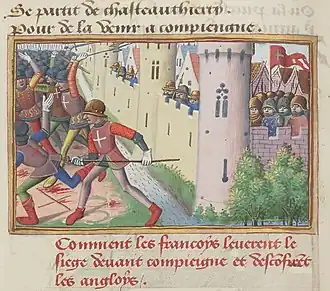 Se partit de chasteauthierry.
Pour de la venir a compiengne.
Comment les francoys leuerent le
siege deuant compieigne et desconfirēt
les angloys.